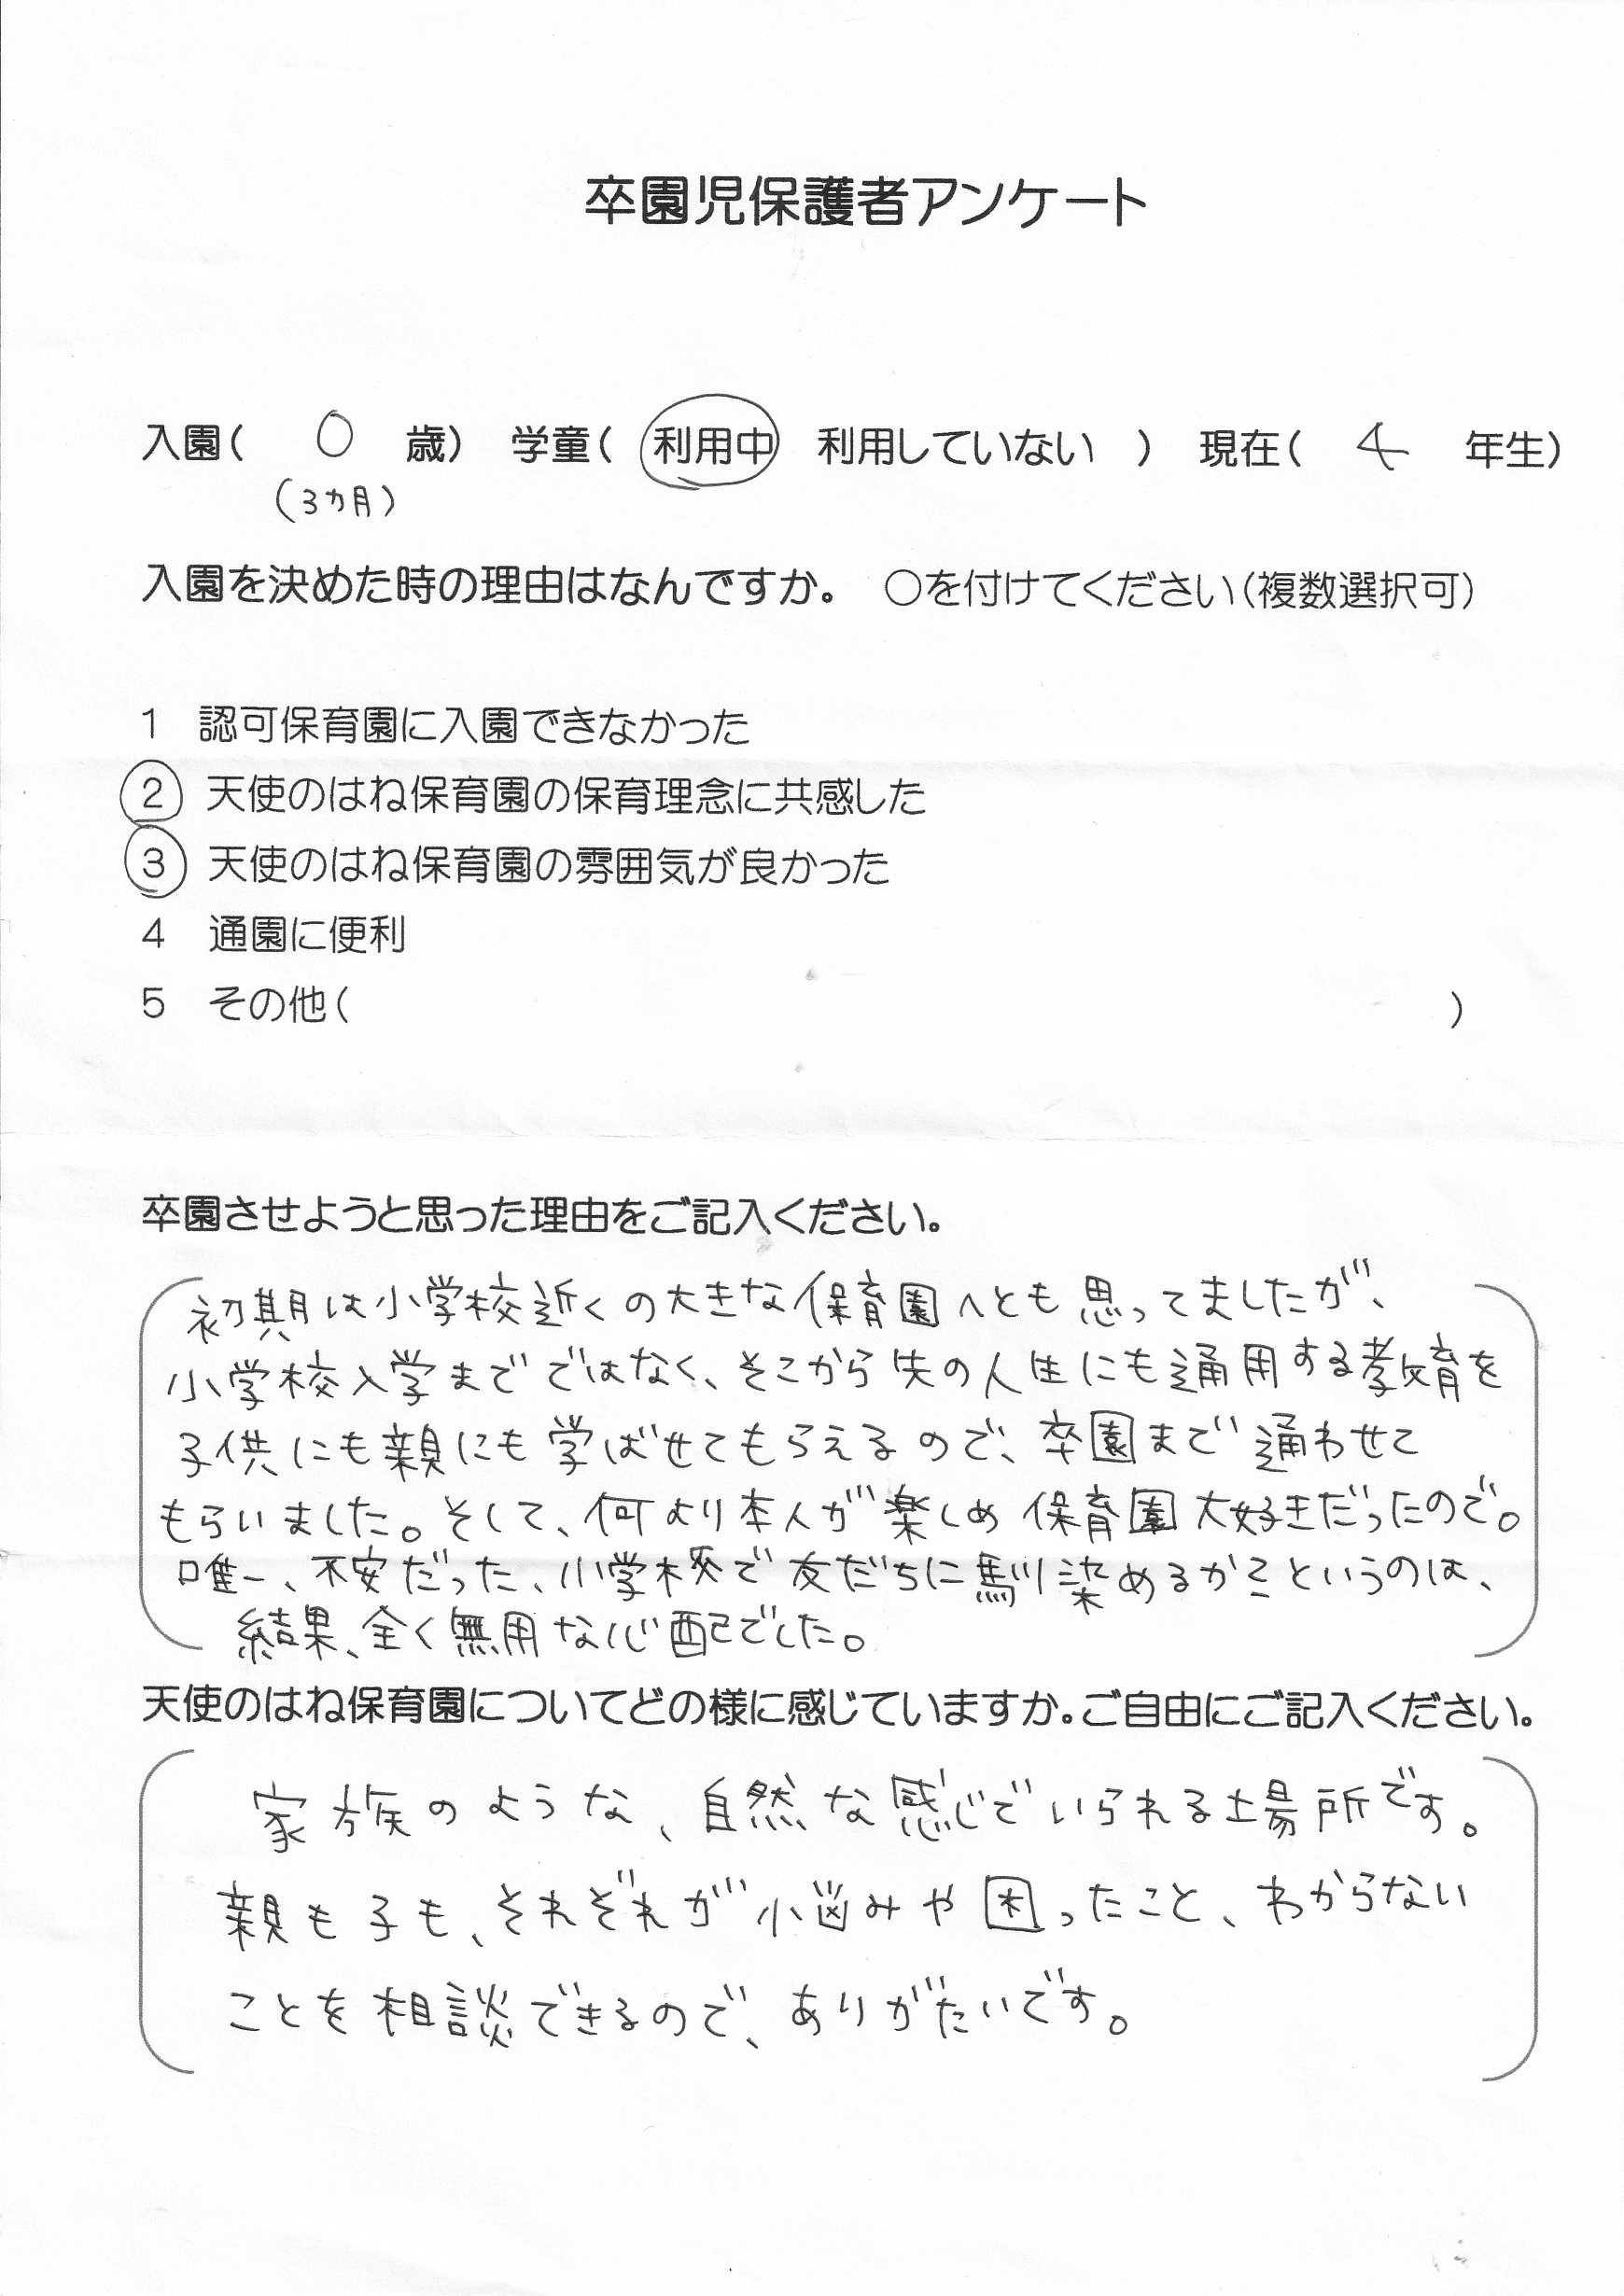 卒園児保護者アンケート
入園( 0 歳) 学童( 利用中 利用していない ) 現在( 4 年生)
(3ヵ月)
入園を決めた時の理由はなんですか。 ○を付けてください(複数選択可)
1 認可保育園に入園できなかった
2 天使のはね保育園の保育理念に共感した
3 天使のはね保育園の雰囲気が良かった
4 通園に便利
5 その他( )
卒園させようと思った理由をご記入ください。
初期は小学校近くの大きな保育園へとも思ってましたが、
小学校入学まででではなく、そこから先の人生にも通用する教育を
子供にも親にも学ばせてもらえるので、卒園まで通わせて
もらいました。そして、何より本人が楽しめ保育園大好きだったので。
唯一、不安だった、小学校で友だちに馴染めるか?というのは、
結果、全く無用な心配でした。
天使のはね保育園についてどの様に感じていますか。ご自由にご記入ください。
家族のような、自然な感じでいられる場所です。
親も子も、それぞれが小悩みや困ったこと、わからない
ことを相談できるので、ありがたいです。